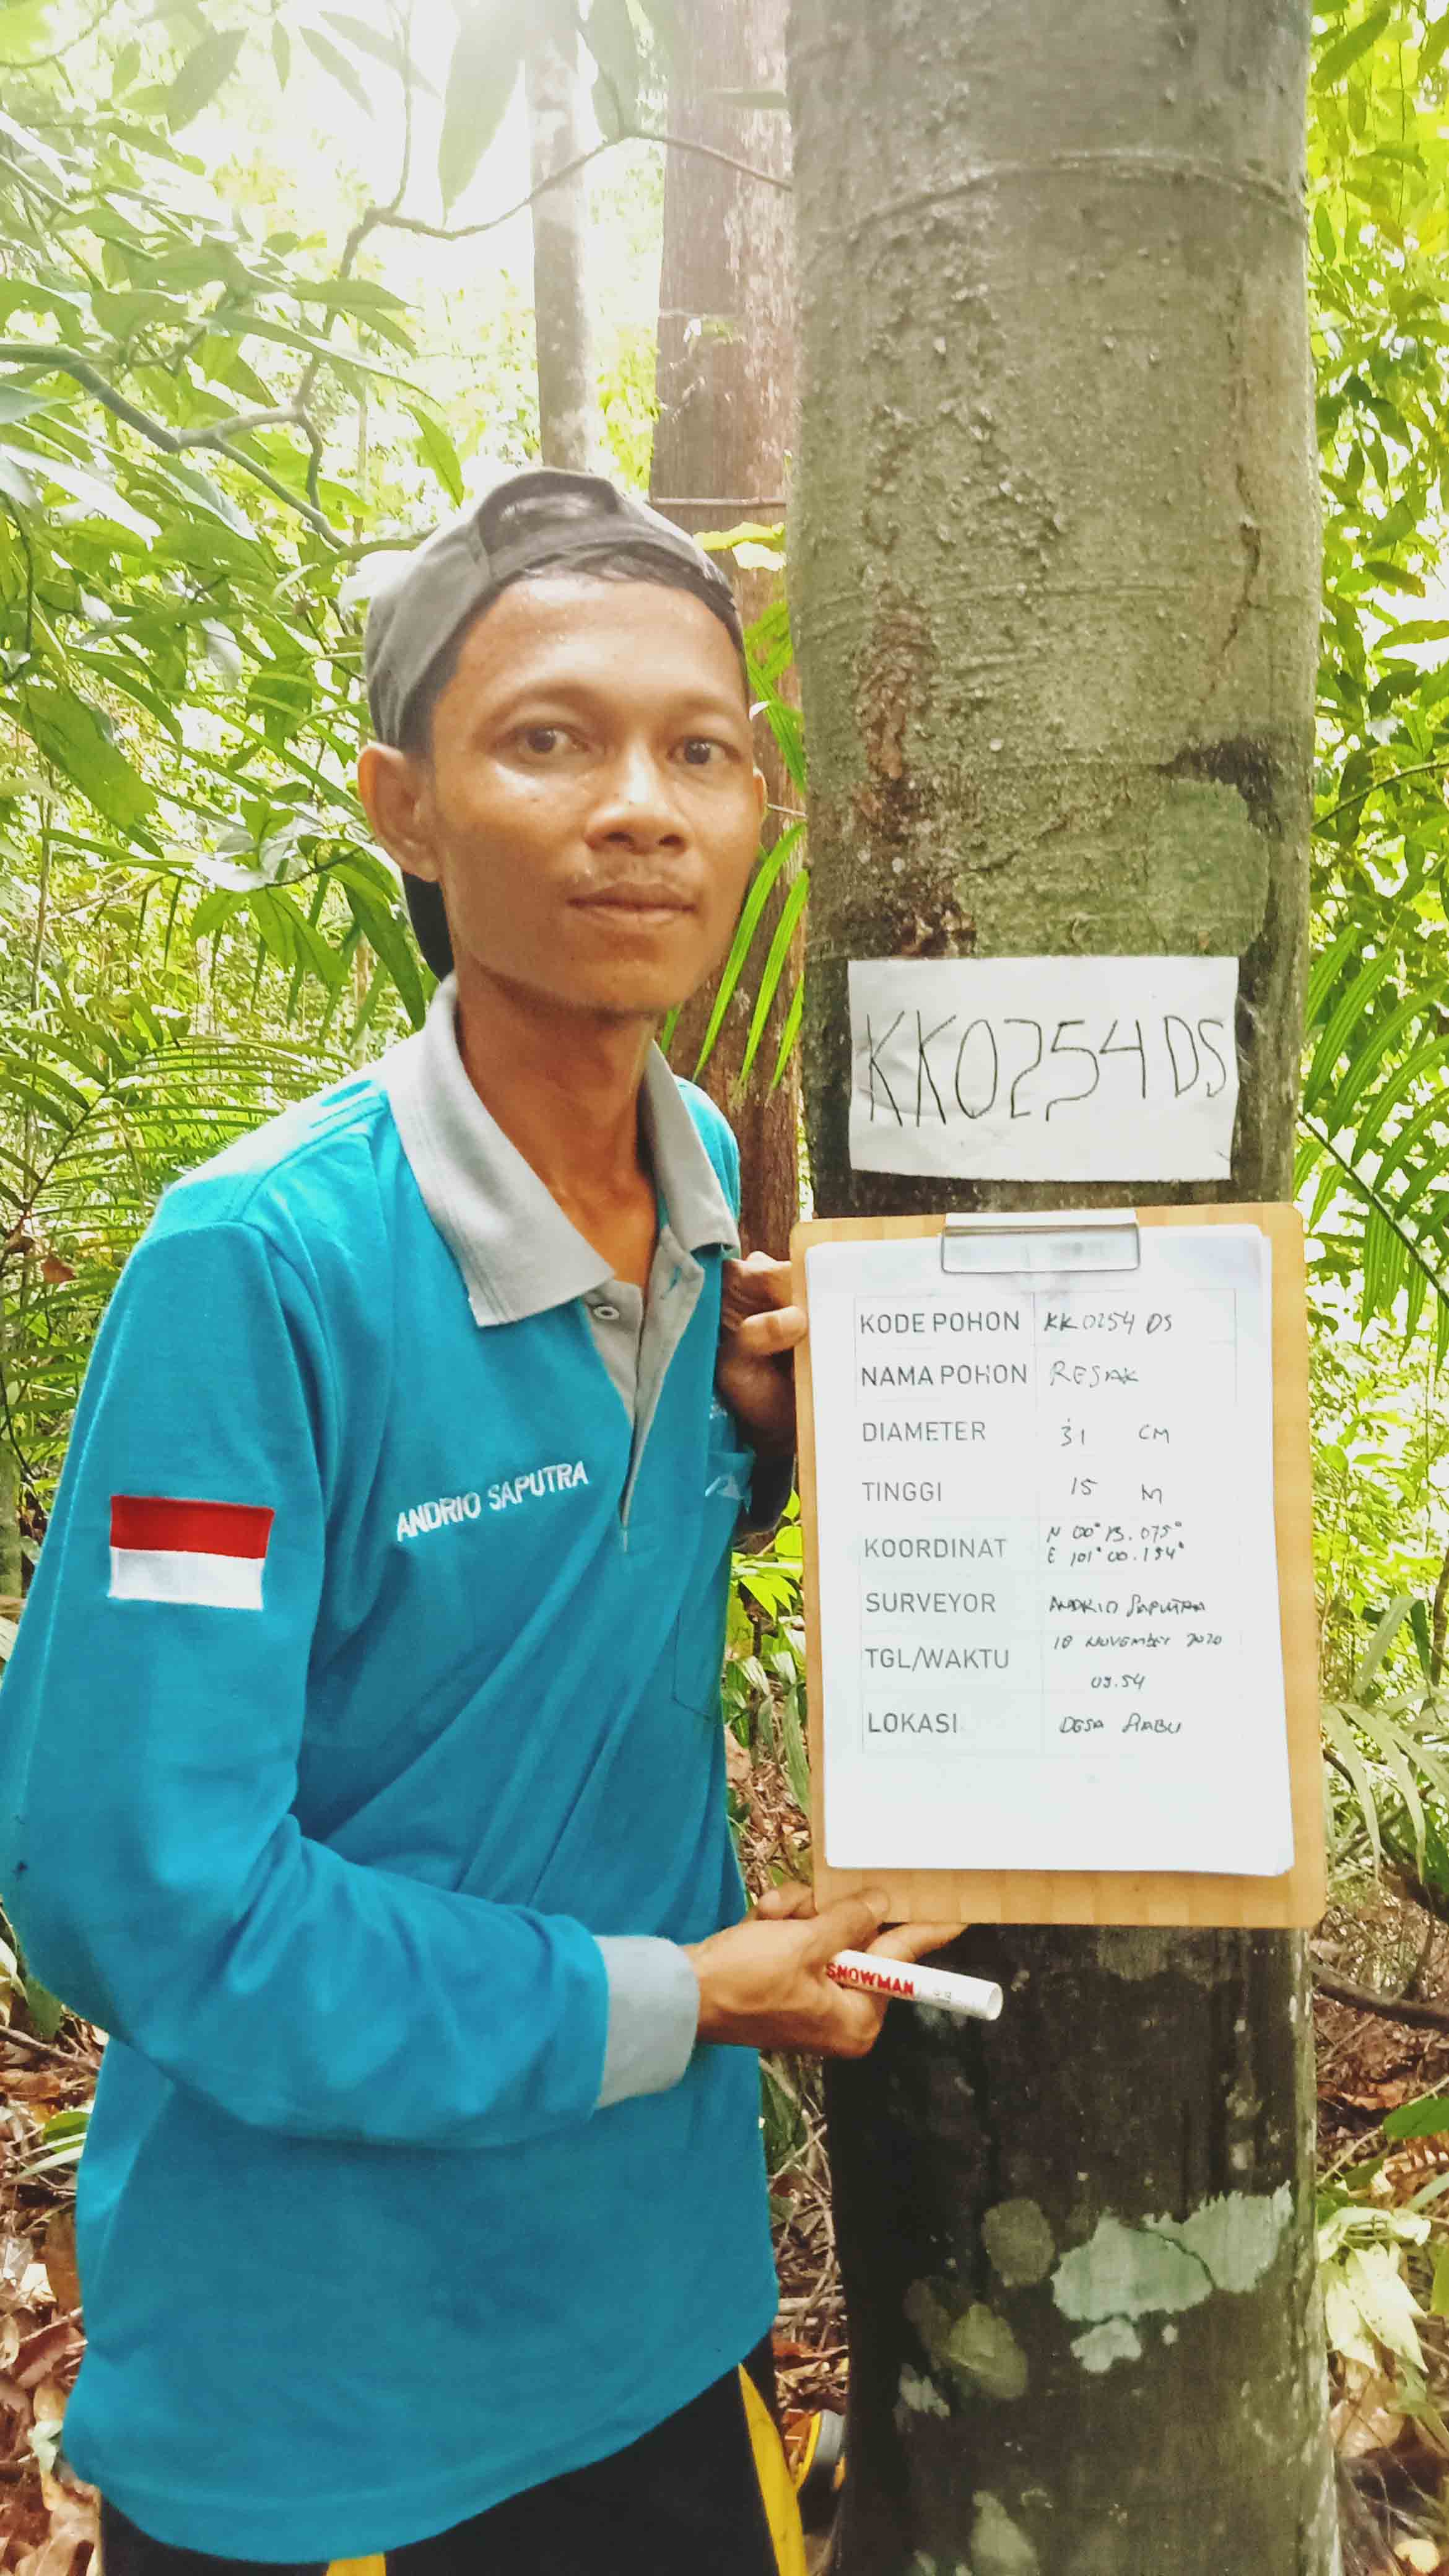 KK0254 DS
KODE POHON KK0254 DS
NAMA POHON RESAK
DIAMETER 31 CM
TINGGI 15 M
KOORDINAT N 00° 13.075°
E 101° 00.154°
SURVEYOR ANDRIO SAPUTRA
TGL/WAKTU 18 NOVEMBER 2020
09.54
LOKASI DESA
ANDRIO SAPUTRA
SNOWMAN